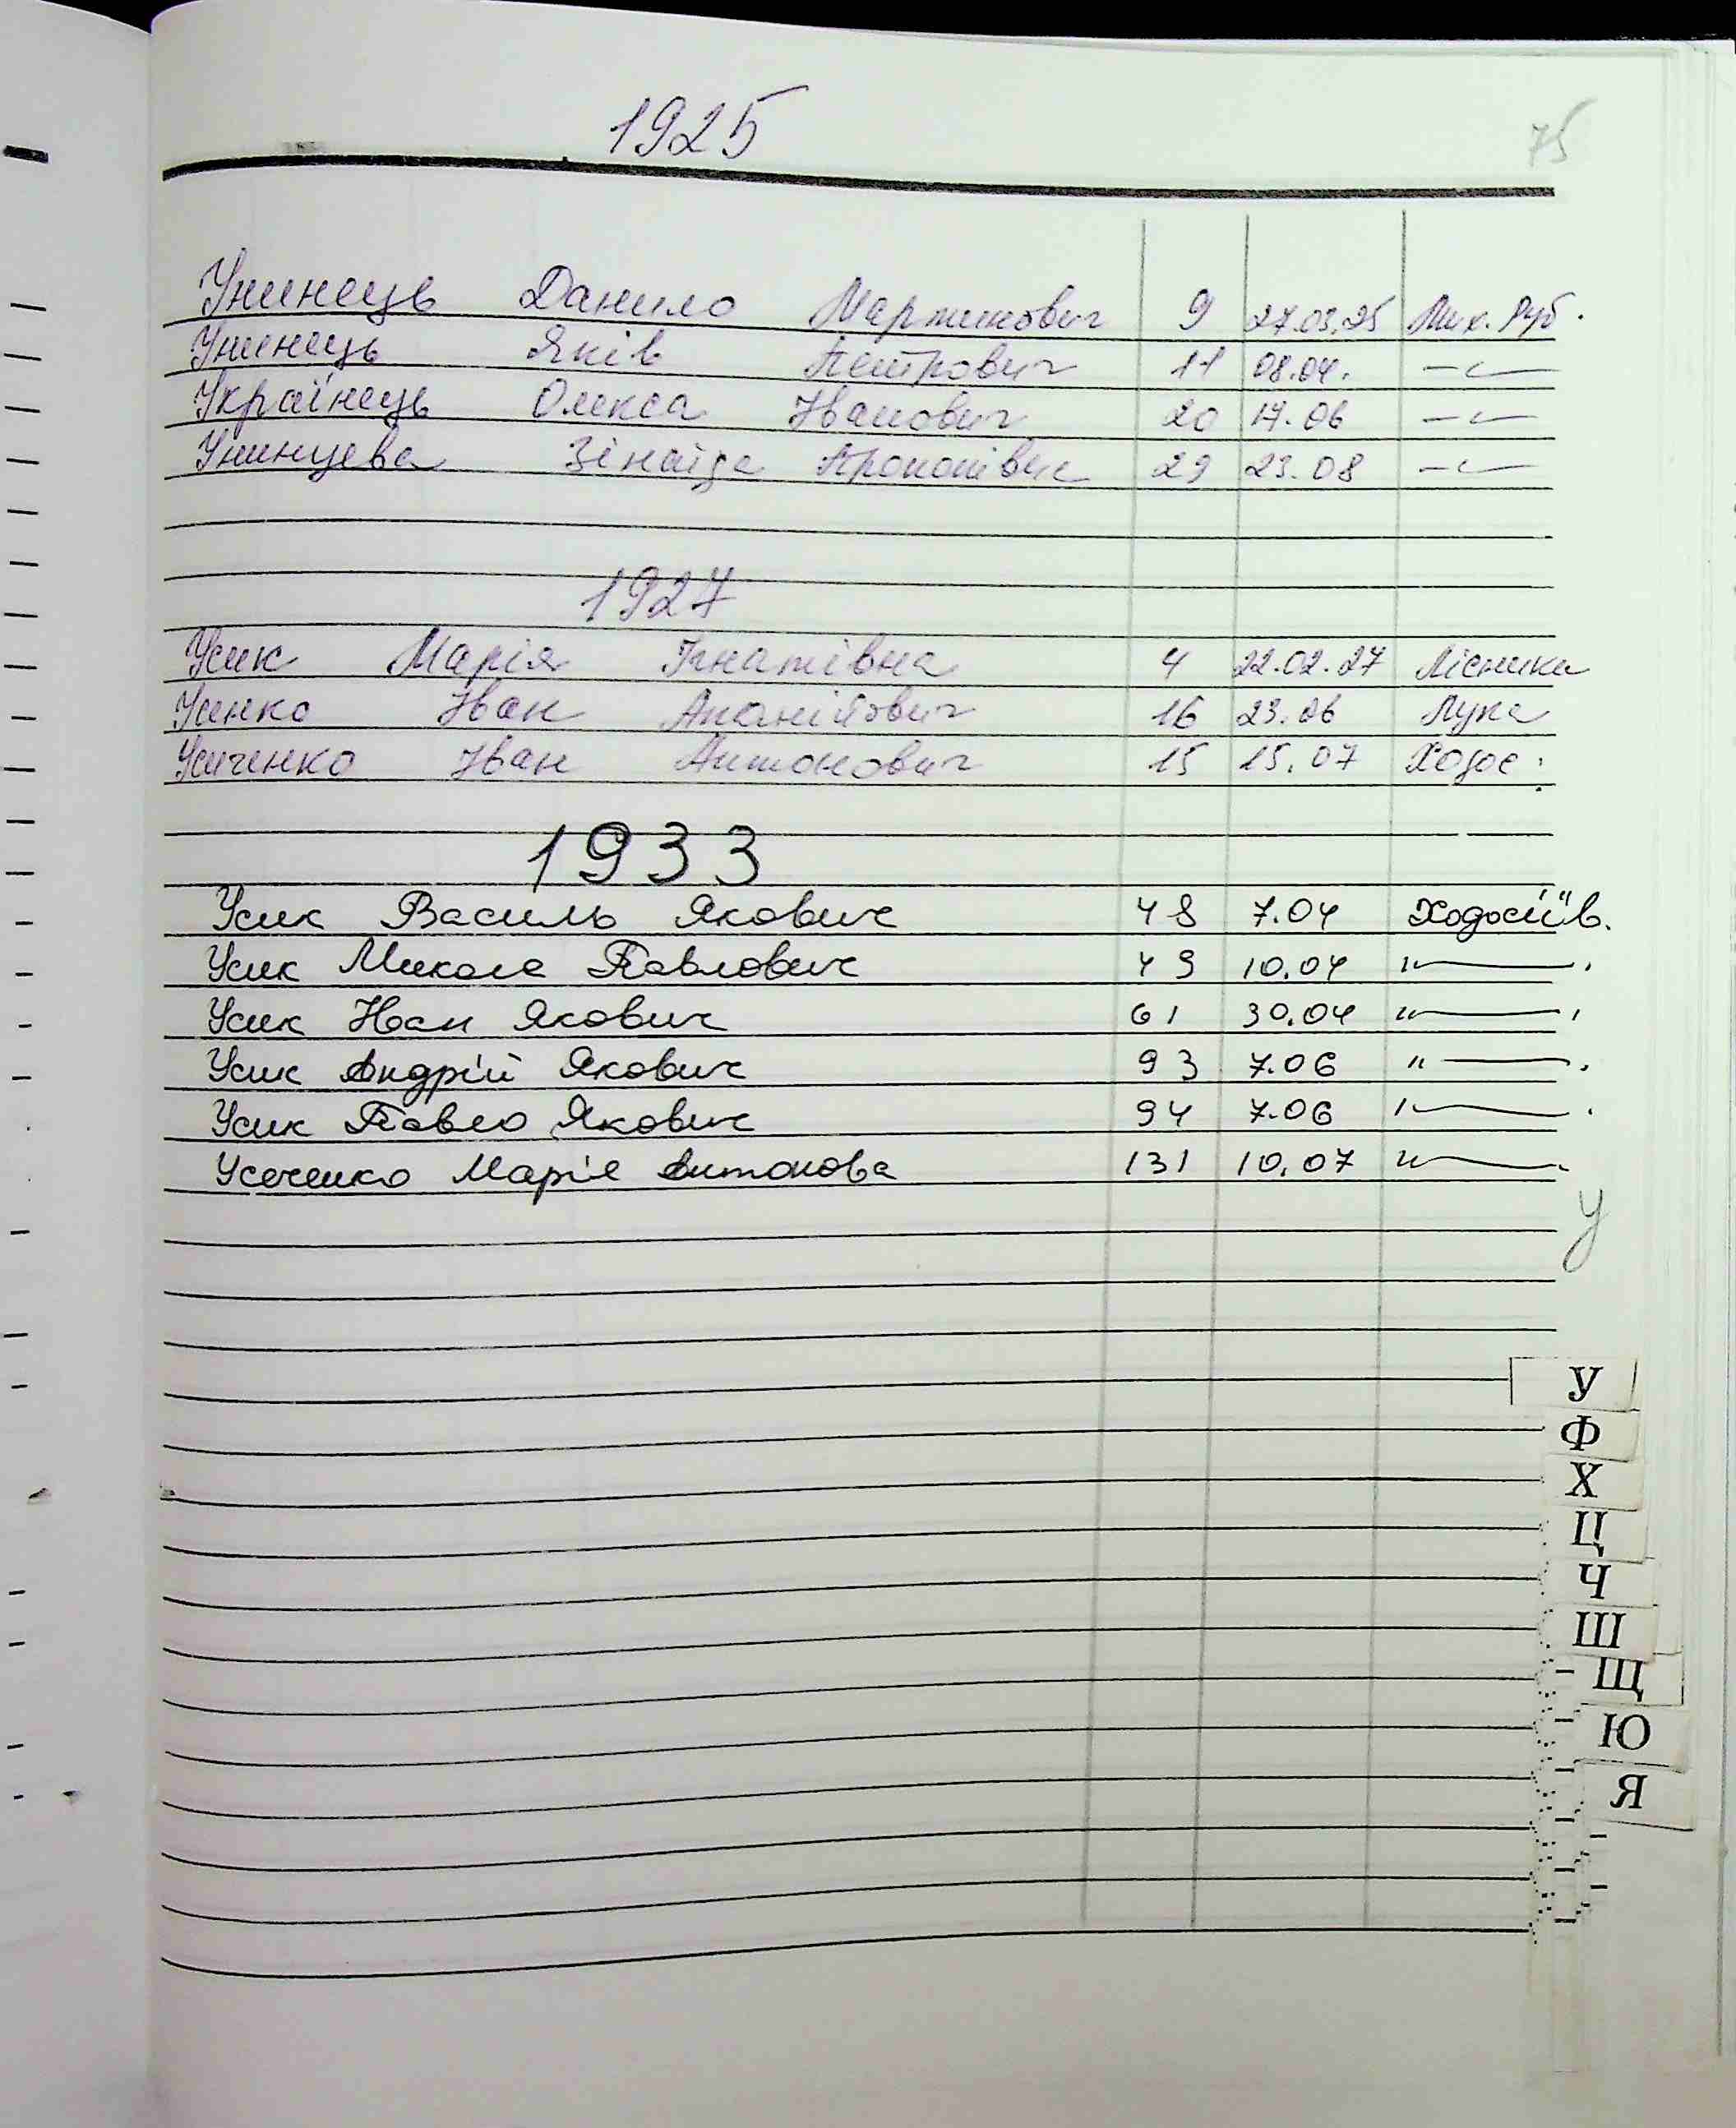 1925
75
Унинець Данило Мартинович 9 27.03.25 Мих. Руб.
Унинець Яків Петрович 11 08.04. —"—
Українець Олекса Іванович 20 17.06 —"—
Унинцева Зінаїда Прокопівна 29 23.08 —"—
1927
Усик Марія Ігнатівна 4 22.02.27 Лісники
Усенко Іван Ананійович 16 23.06 Лука
Усиченко Іван Антонович 15 15.07 Ходос.
1933
Усик Василь Якович 48 7.04 Ходосіїв.
Усик Микола Павлович 49 10.04 "—
Усик Іван Якович 61 30.04 "—
Усик Андрій Якович 93 7.06 "—
Усик Павло Якович 94 7.06 "—
Усеченко Марія Антонова 131 10.07 "—
У
У
Ф
Х
Ц
Ч
Ш
Щ
Ю
Я